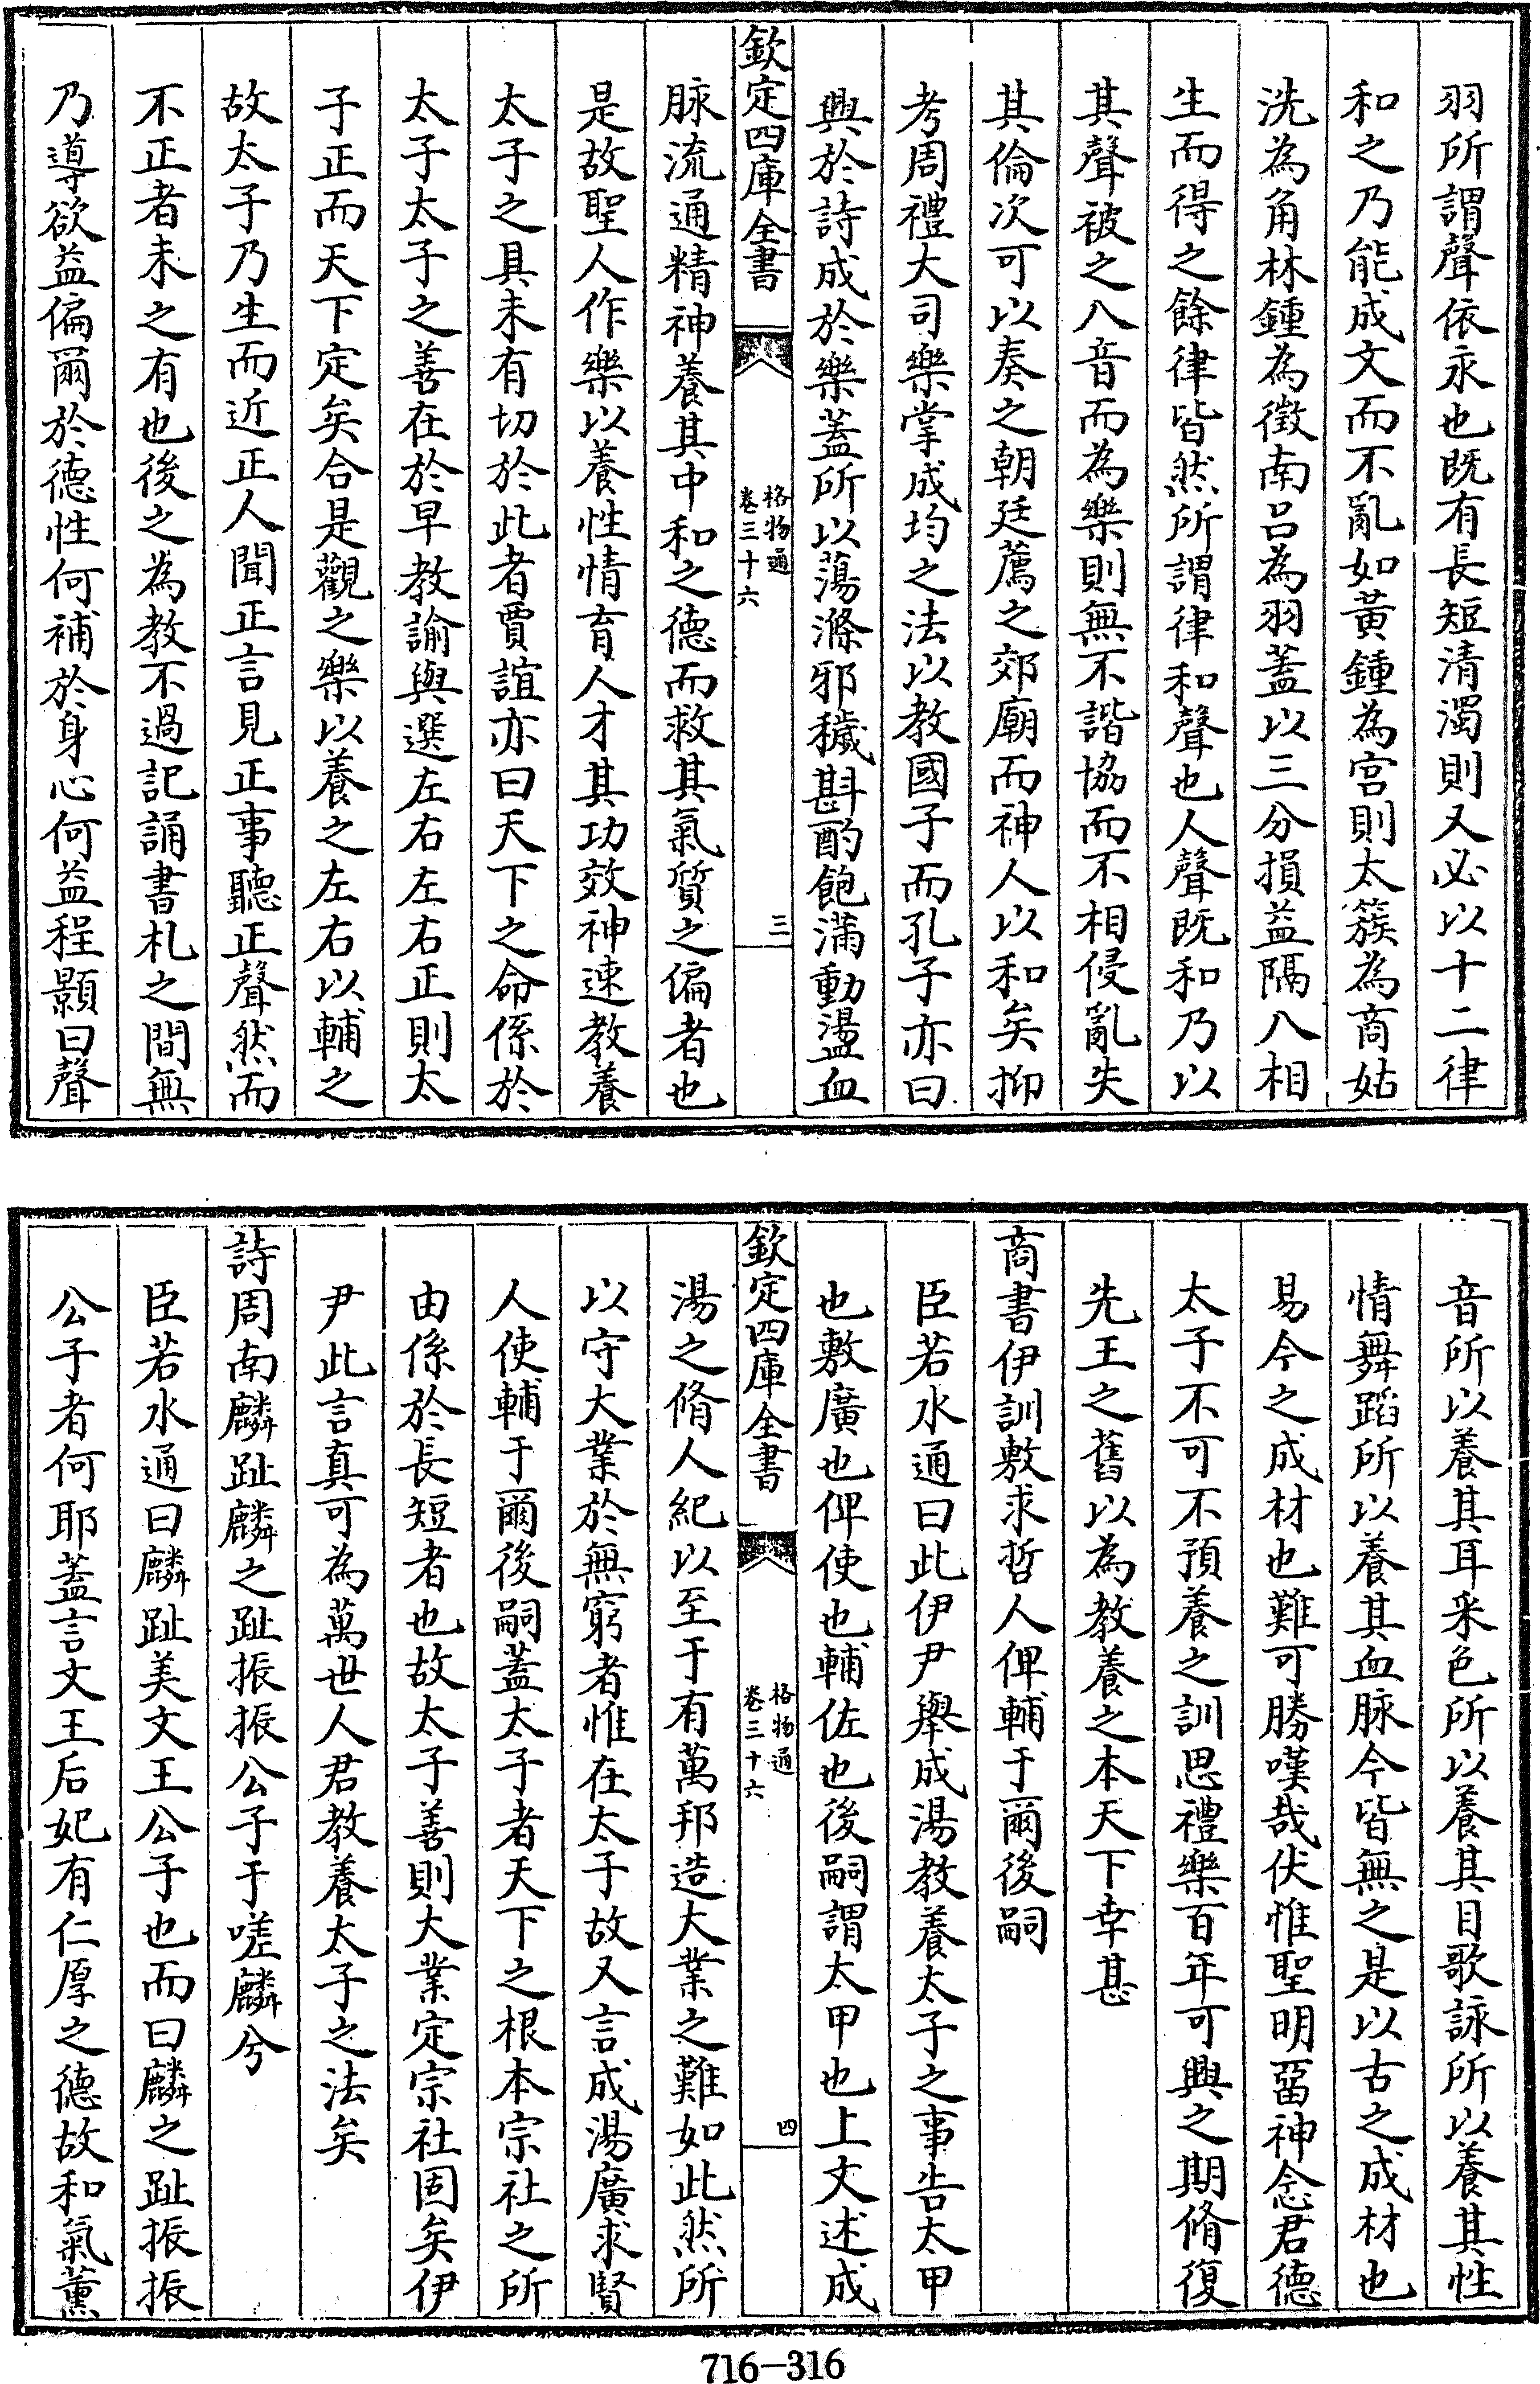 羽所謂聲依永也既有長短清濁則又必以十二律
和之乃能成文而不亂如黃鍾為宮則太簇為商姑
洗為角林鍾為徵南呂為羽蓋以三分損益隔八相
生而得之餘律皆然所謂律和聲也人聲既和乃以
其聲被之八音而為樂則無不諧協而不相侵亂失
其倫次可以奏之朝廷薦之郊廟而神人以和矣抑
考周禮大司樂掌成均之法以教國子而孔子亦曰
興於詩成於樂蓋所以蕩滌邪穢斟酌飽滿動盪血
欽定四庫全書
格物通
卷三十六
三
脉流通精神養其中和之德而救其氣質之偏者也
是故聖人作樂以養性情育人才其功效神速教養
太子之具未有切於此者賈誼亦曰天下之命係於
太子太子之善在於早教諭與選左右左右正則太
子正而天下定矣合是觀之樂以養之左右以輔之
故太子乃生而近正人聞正言見正事聽正聲然而
不正者未之有也後之為教不過記誦書札之間無
乃導欲益偏爾於德性何補於身心何益程顥曰聲
音所以養其耳采色所以養其目歌詠所以養其性
情舞蹈所以養其血脉今皆無之是以古之成材也
易今之成材也難可勝嘆哉伏惟聖明畱神念君德
太子不可不預養之訓思禮樂百年可興之期脩復
先王之舊以為教養之本天下幸甚
商書伊訓敷求哲人俾輔于爾後嗣
臣若水通曰此伊尹舉成湯教養太子之事告太甲
也敷廣也俾使也輔佐也後嗣謂太甲也上文述成
欽定四庫全書
格物通
卷三十六
四
湯之脩人紀以至于有萬邦造大業之難如此然所
以守大業於無窮者惟在太子故又言成湯廣求賢
人使輔于爾後嗣蓋太子者天下之根本宗社之所
由係於長短者也故太子善則大業定宗社固矣伊
尹此言真可為萬世人君教養太子之法矣
詩周南麟趾麟之趾振振公子于嗟麟兮
臣若水通曰麟趾美文王公子也而曰麟之趾振振
公子者何耶蓋言文王后妃有仁厚之德故和氣薰
716-316